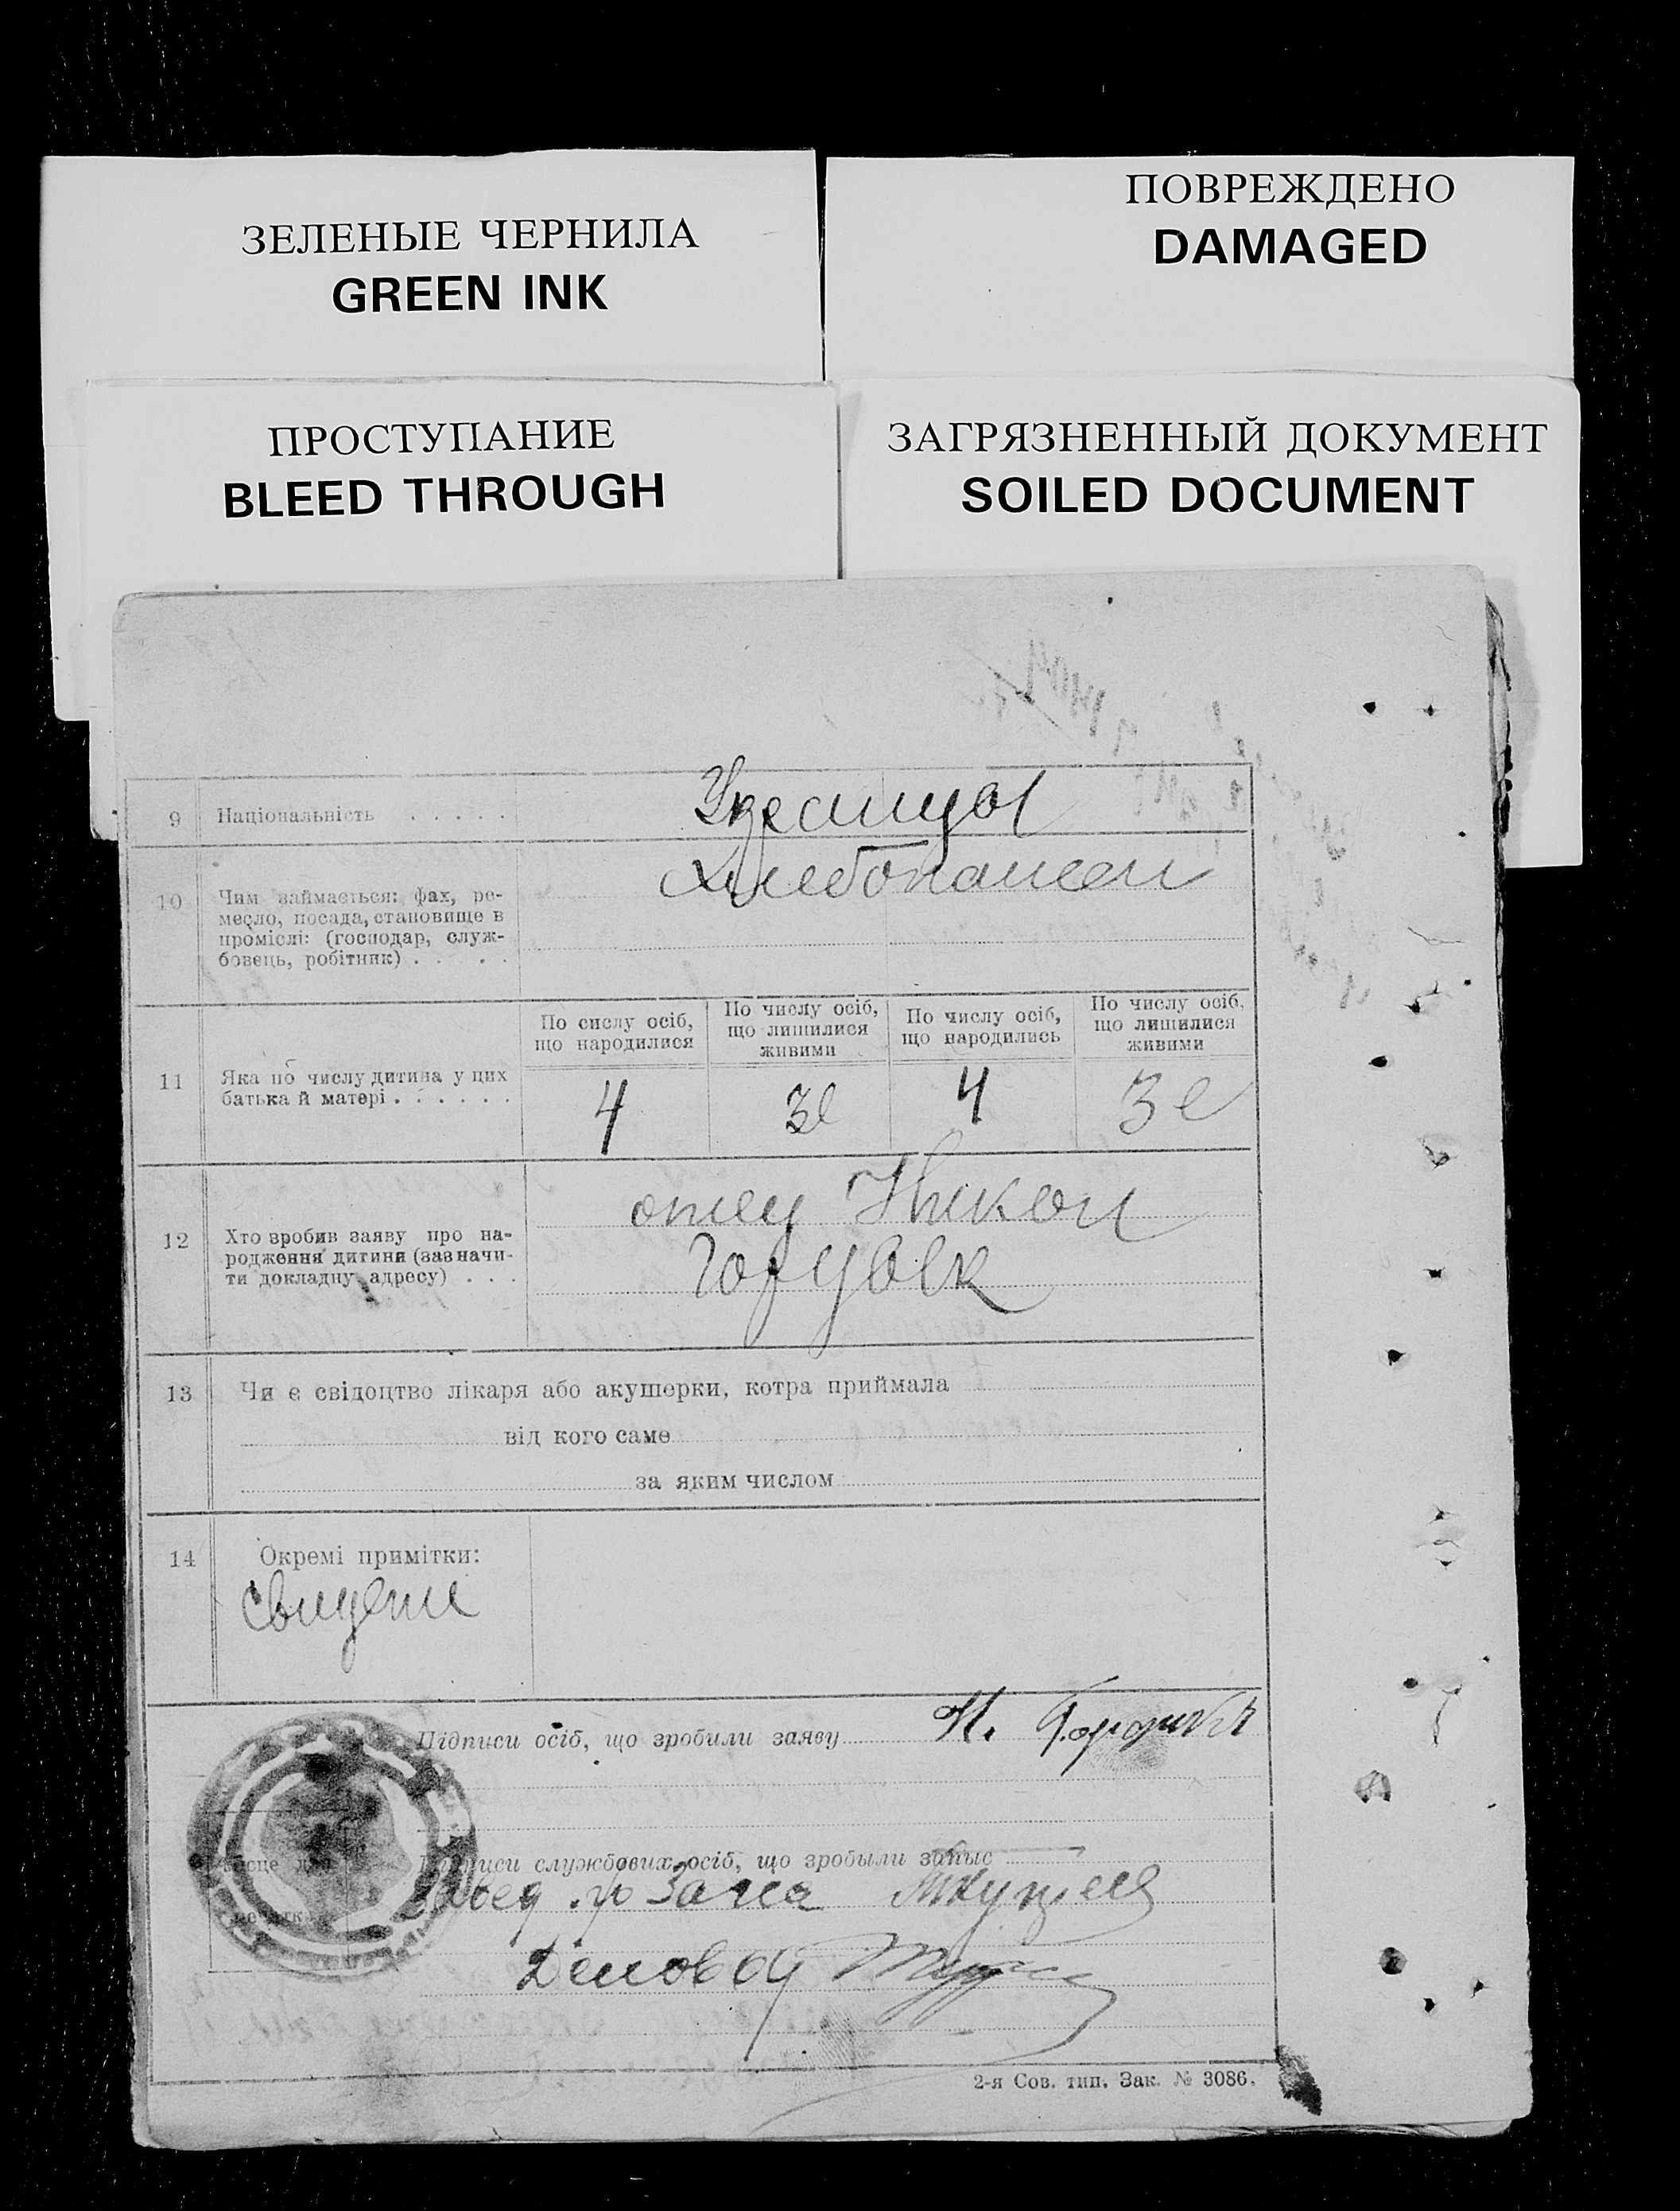 ЗЕЛЕНЫЕ ЧЕРНИЛА
GREEN INK
ПОВРЕЖДЕНО
DAMAGED
ПРОСТУПАНИЕ
BLEED THROUGH
ЗАГРЯЗНЕННЫЙ ДОКУМЕНТ
SOILED DOCUMENT
9 Національність . . . . .
Украинцы
10 Чим займається: фах, ре-
месло, посада, становище в
проміслі: (господар, служ-
бовець, робітник) . . . .
Хлебопашец
По сислу осіб,
що народилися
По числу осіб,
що лишилися
живими
По числу осіб,
що народились
По числу осіб,
що лишилися
живими
11 Яка по числу дитина у цих
батька й матері . . . . . .
4 3е 4 3е
12 Хто зробив заяву про на-
родження дитини (зазначи-
ти докладну адресу) . . .
отец Никон
13 Чи є свідоцтво лікаря або акушерки, котра приймала
від кого саме
за яким числом
14 Окремі примітки:
Підписи осіб, що зробили заяву Н.
Підписи службових осіб, що зробыли запыс
Завед. п/о Загса
Деловод
2-я Сов. тип. Зак. № 3086.